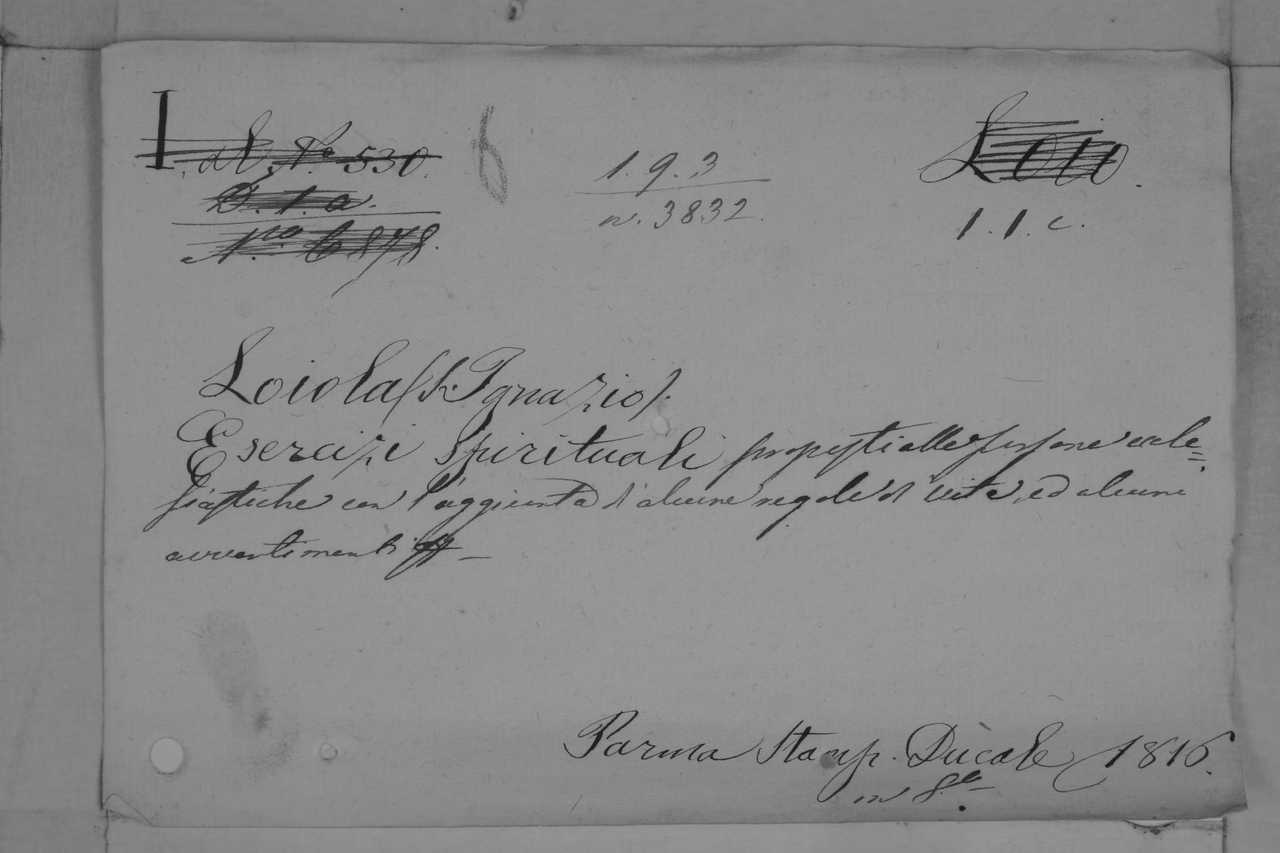 I. al N.º 530.
D. 1. a.
N.ro 6878.
6
1. 9. 3
n. 3832.
Loio.
1. 1. c.
Loiola (S. Ignazio).
Esercizi Spirituali proposti alle persone eccle=
siastiche con l'aggiunta d'alcune regole di vita, ed alcuni
avvertimenti
Parma Stamp. Ducale 1816.
in 8.º